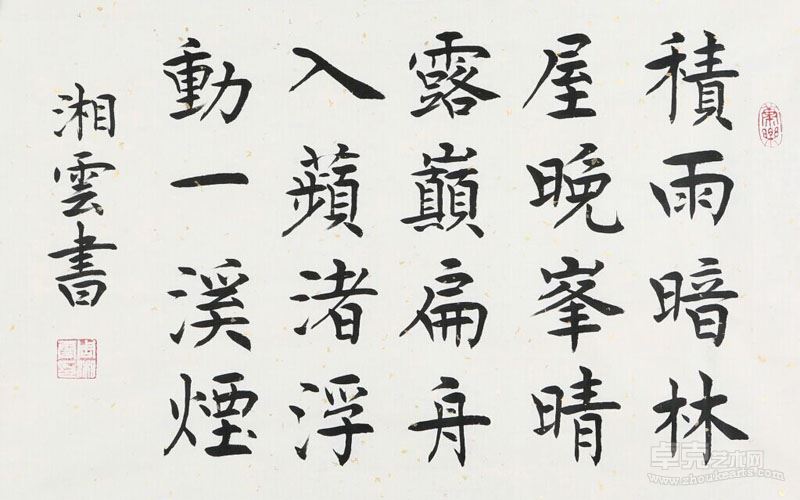 積雨暗林
屋晚峯晴
露巔扁舟
入蘋渚浮
動一溪煙
湘雲書
卓克艺术网
www.zhuokearts.com